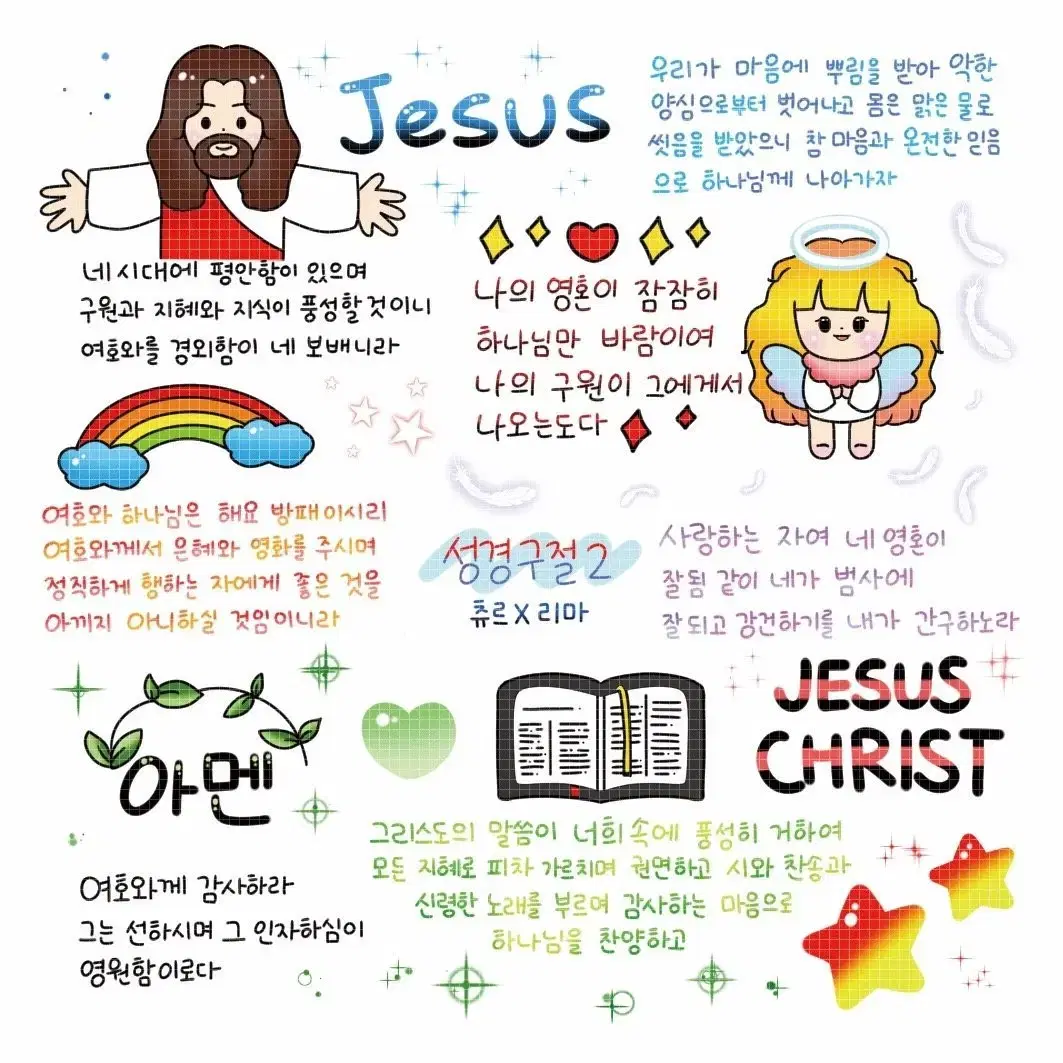 Jesus
우리가 마음에 뿌림을 받아 악한
양심으로부터 벗어나고 몸은 맑은 물로
씻음을 받았으니 참 마음과 온전한 믿음
으로 하나님께 나아가자
네 시대에 평안함이 있으며
구원과 지혜와 지식이 풍성할 것이니
여호와를 경외함이 네 보배니라
나의 영혼이 잠잠히
하나님만 바람이여
나의 구원이 그에게서
나오는도다
여호와 하나님은 해요 방패이시라
여호와께서 은혜와 영화를 주시며
정직하게 행하는 자에게 좋은 것을
아끼지 아니하실 것임이니라
성경구절 2
츄르 X 리마
사랑하는 자여 네 영혼이
잘됨 같이 네가 범사에
잘되고 강건하기를 내가 간구하노라
아멘
JESUS
CHRIST
그리스도의 말씀이 너희 속에 풍성히 거하여
모든 지혜로 피차 가르치며 권면하고 시와 찬송과
신령한 노래를 부르며 감사하는 마음으로
하나님을 찬양하고
여호와께 감사하라
그는 선하시며 그 인자하심이
영원함이로다